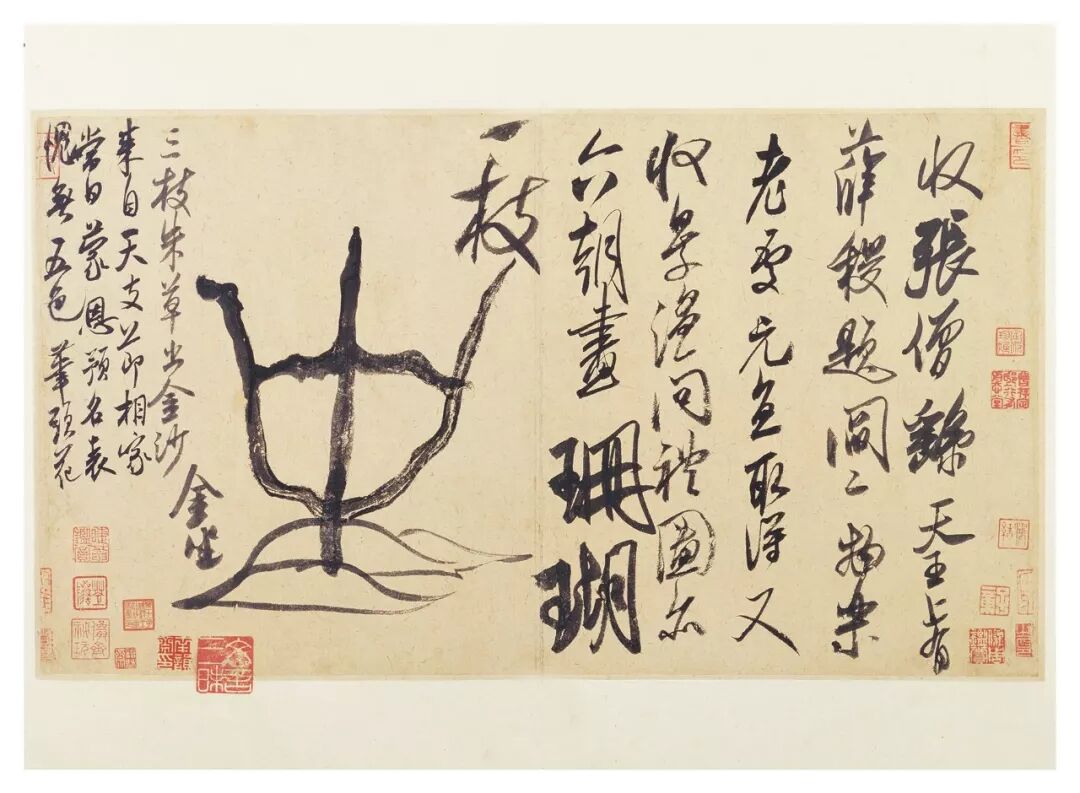 收張僧繇天王上有
薛稷題閻二物樂
老處元直取得又
收景温問禮圖亦
六朝畫珊瑚
一枝
金坐
三枝朱草出金沙
来自天支節相家
當日蒙恩預名表
愧無五色筆頭花